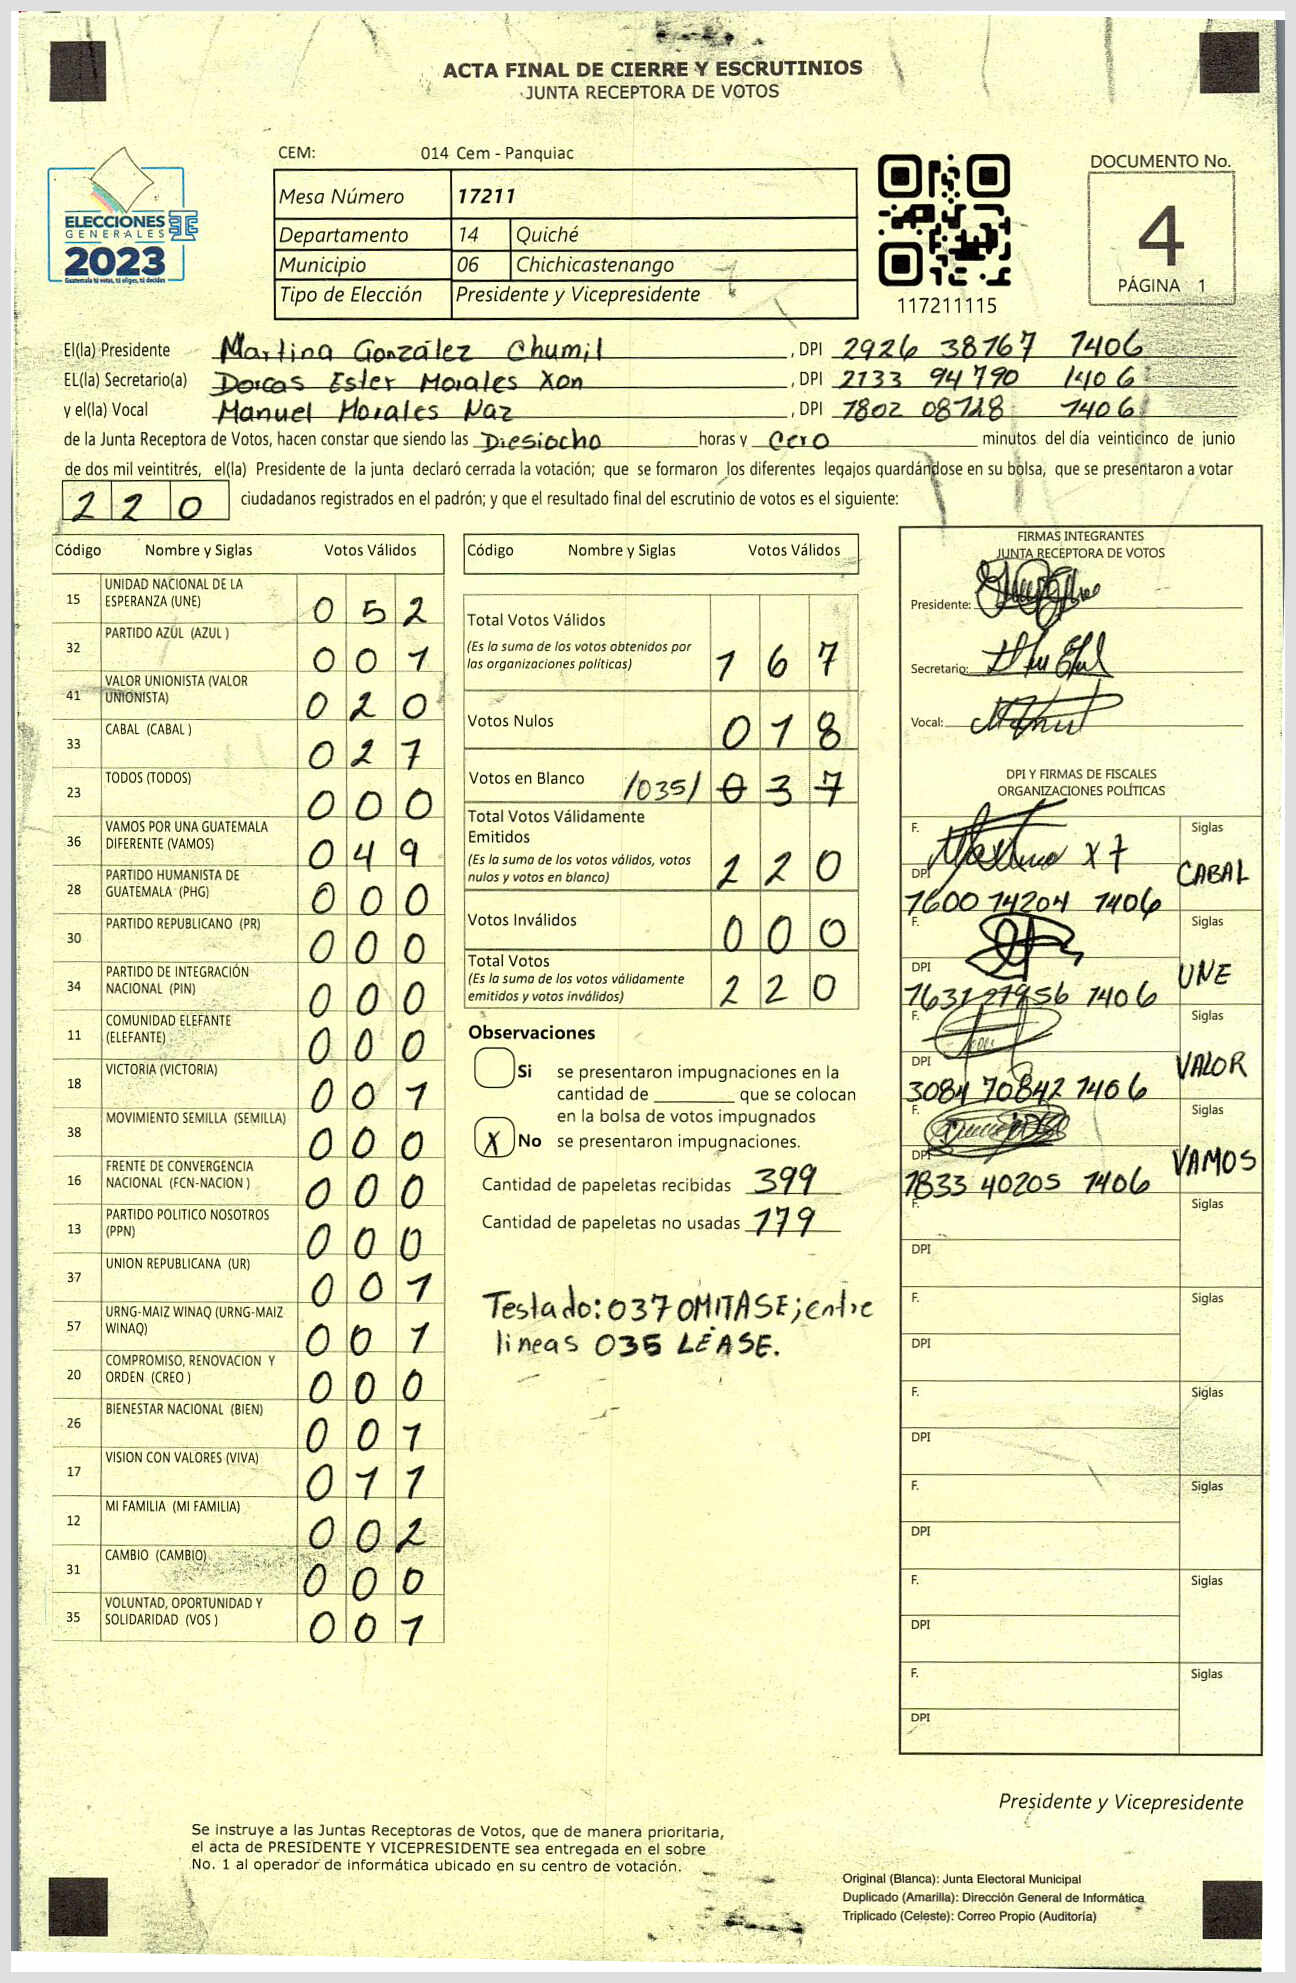 ACTA FINAL DE CIERRE Y ESCRUTINIOS
JUNTA RECEPTORA DE VOTOS
ELECCIONES
GENERALES
2023
Guatemala tú votas, tú eliges, tú decides
CEM: 014 Cem - Panquiac
Mesa Número 17211
Departamento 14 Quiché
Municipio 06 Chichicastenango
Tipo de Elección Presidente y Vicepresidente
117211115
DOCUMENTO No.
4
PÁGINA 1
El(la) Presidente Martina González Chumil , DPI 2926 38767 1406
EL(la) Secretario(a) Dorcas Ester Morales Xon , DPI 2133 94790 1406
y el(la) Vocal Manuel Morales Naz , DPI 1802 08728 1406
de la Junta Receptora de Votos, hacen constar que siendo las Diesiocho horas y Cero minutos del día veinticinco de junio
de dos mil veintitrés, el(la) Presidente de la junta declaró cerrada la votación; que se formaron los diferentes legajos quardándose en su bolsa, que se presentaron a votar
220 ciudadanos registrados en el padrón; y que el resultado final del escrutinio de votos es el siguiente:
Código Nombre y Siglas Votos Válidos
15 UNIDAD NACIONAL DE LA ESPERANZA (UNE) 052
32 PARTIDO AZUL (AZUL ) 001
41 VALOR UNIONISTA (VALOR UNIONISTA) 020
33 CABAL (CABAL ) 027
23 TODOS (TODOS) 000
36 VAMOS POR UNA GUATEMALA DIFERENTE (VAMOS) 049
28 PARTIDO HUMANISTA DE GUATEMALA (PHG) 000
30 PARTIDO REPUBLICANO (PR) 000
34 PARTIDO DE INTEGRACIÓN NACIONAL (PIN) 000
11 COMUNIDAD ELEFANTE (ELEFANTE) 000
18 VICTORIA (VICTORIA) 001
38 MOVIMIENTO SEMILLA (SEMILLA) 000
16 FRENTE DE CONVERGENCIA NACIONAL (FCN-NACION ) 000
13 PARTIDO POLITICO NOSOTROS (PPN) 000
37 UNION REPUBLICANA (UR) 001
57 URNG-MAIZ WINAQ (URNG-MAIZ WINAQ) 001
20 COMPROMISO, RENOVACION Y ORDEN (CREO ) 000
26 BIENESTAR NACIONAL (BIEN) 001
17 VISION CON VALORES (VIVA) 011
12 MI FAMILIA (MI FAMILIA) 002
31 CAMBIO (CAMBIO) 000
35 VOLUNTAD, OPORTUNIDAD Y SOLIDARIDAD (VOS ) 001
Código Nombre y Siglas Votos Válidos
Total Votos Válidos
(Es la suma de los votos obtenidos por
las organizaciones políticas) 167
Votos Nulos 018
Votos en Blanco /035/ 037
Total Votos Válidamente
Emitidos
(Es la suma de los votos válidos, votos
nulos y votos en blanco) 220
Votos Inválidos 000
Total Votos
(Es la suma de los votos válidamente
emitidos y votos inválidos) 220
Observaciones
Si se presentaron impugnaciones en la
cantidad de ________ que se colocan
en la bolsa de votos impugnados
X No se presentaron impugnaciones.
Cantidad de papeletas recibidas 399
Cantidad de papeletas no usadas 179
Testado: 037 OMITASE; entre
lineas 035 LÉASE.
FIRMAS INTEGRANTES
JUNTA RECEPTORA DE VOTOS
Presidente:
Secretario:
Vocal:
DPI Y FIRMAS DE FISCALES
ORGANIZACIONES POLÍTICAS
F. Siglas
DPI CABAL
1600 14204 1406
F. Siglas
DPI UNE
1631 27956 1406
F. Siglas
DPI VALOR
3084 70842 1406
F. Siglas
DPI VAMOS
1833 40205 1406
F. Siglas
DPI
F. Siglas
DPI
F. Siglas
DPI
F. Siglas
DPI
F. Siglas
DPI
F. Siglas
DPI
Presidente y Vicepresidente
Se instruye a las Juntas Receptoras de Votos, que de manera prioritaria,
el acta de PRESIDENTE Y VICEPRESIDENTE sea entregada en el sobre
No. 1 al operador de informática ubicado en su centro de votación.
Original (Blanca): Junta Electoral Municipal
Duplicado (Amarilla): Dirección General de Informática
Triplicado (Celeste): Correo Propio (Auditoría)